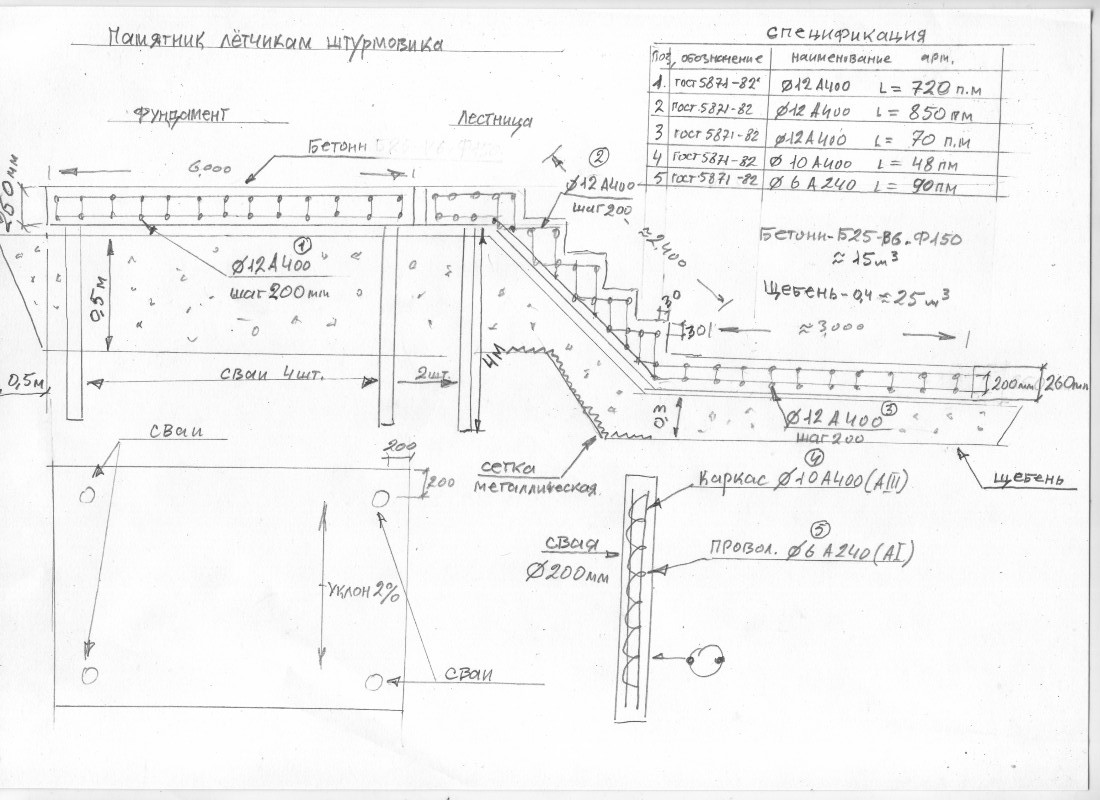 Памятник лётчикам штурмовика
спецификация
Поз. обозначение наименование арм.
1. Гост 5871-82 Ø12 А400 L = 720 п.м
2 Гост 5871-82 Ø12 А400 L = 850 пм
3 Гост 5871-82 Ø12А400 L = 70 п.м
4 Гост 5871-82 Ø 10 А400 L = 48 пм
5 Гост 5871-82 Ø 6 А 240 L = 90пм
Фундамент
Лестница
Бетонн
6,000
2
Ø12 А400
шаг 200
≈2400
250 мм
Бетонн-Б25-В6.Ф150
≈ 15 м³
Щебень-0,4 ≈ 25 м³
1
Ø12А400
шаг 200 мм
0,5м
30
30
≈3,000
4м
0,5м
сваи 4шт.
2шт.
200мм
260мм
Ø12А400
3
шаг 200
сваи
200
200
сетка
металлическая
щебень
4
Каркас Ø10А400(АIII)
5
Провол. Ø6 А240(АI)
свая
Ø200мм
Уклон 2%
сваи